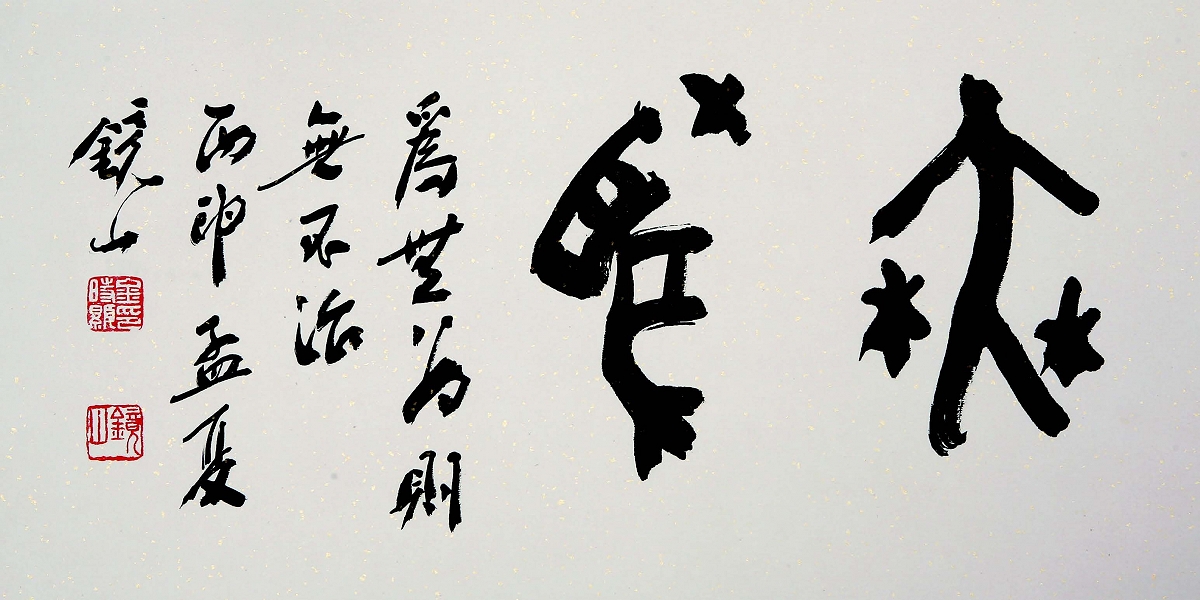 無爲
爲無為則
無不治
丙申孟夏
鏡山
金時顯印
鏡山